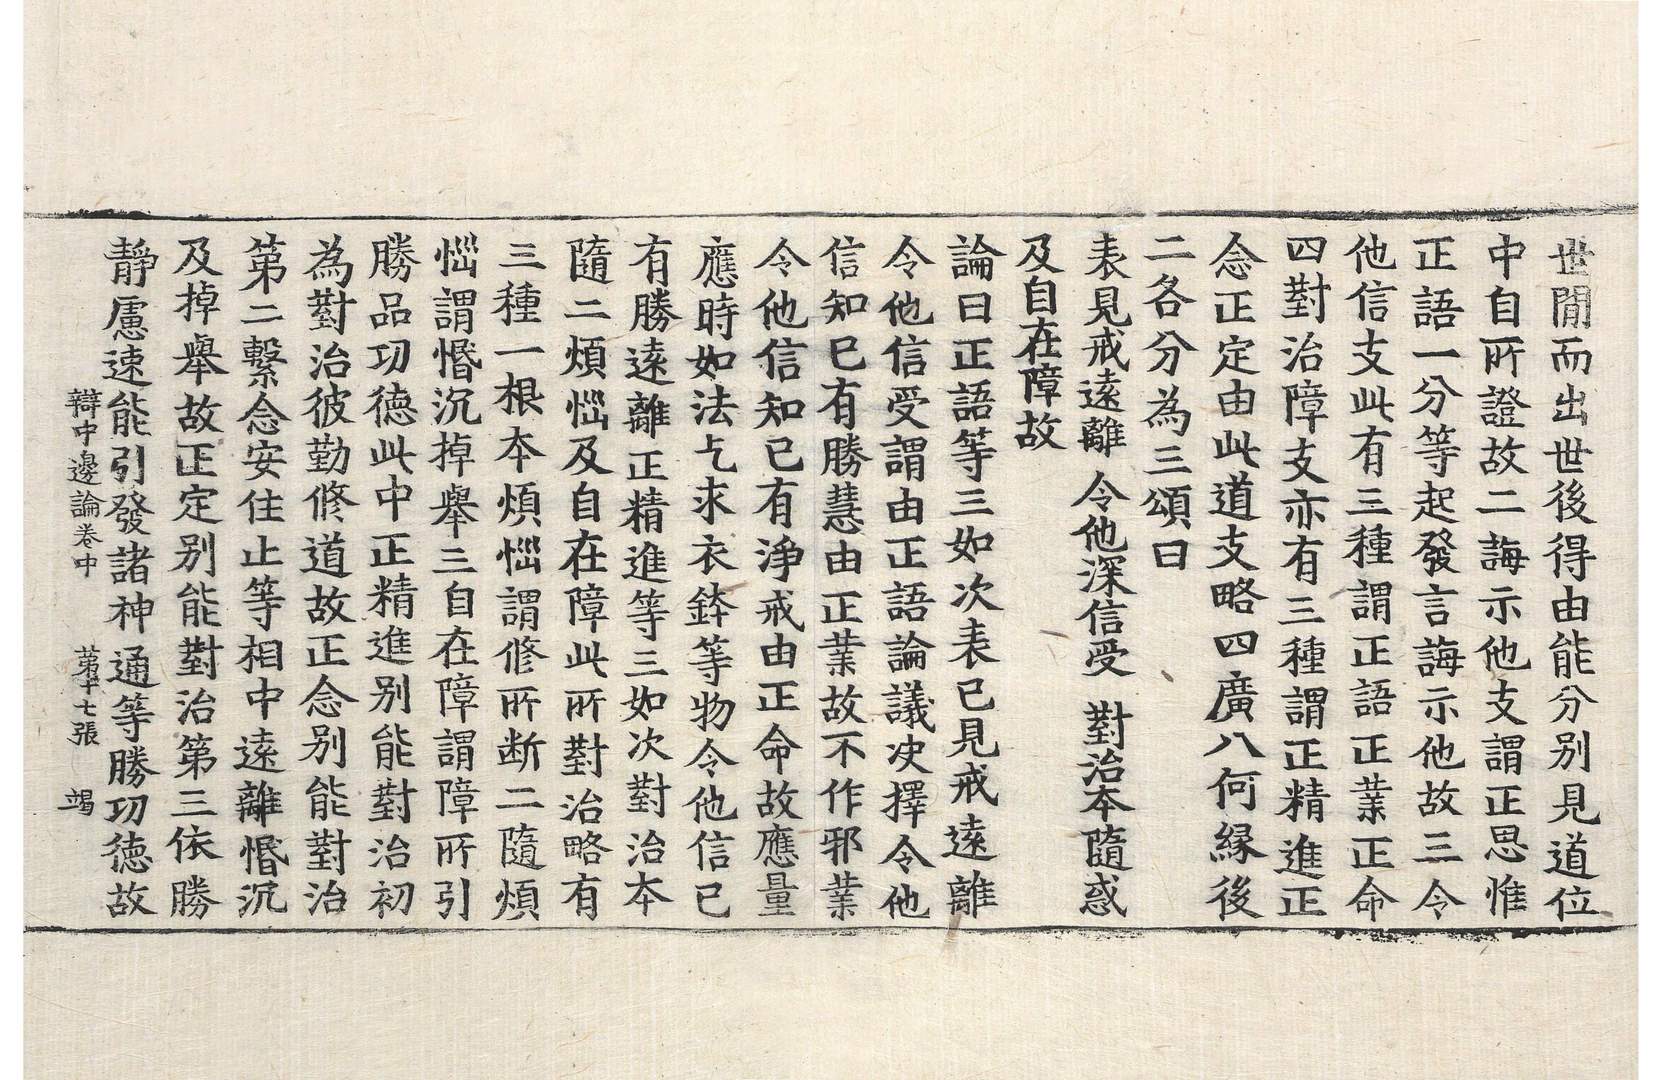 世間而出世後得由能分別見道位
中自所證故二誨示他支謂正思惟
正語一分等起發言誨示他故三令
他信支此有三種謂正語正業正命
四對治障支亦有三種謂正精進正
念正定由此道支略四廣八何緣後
二各分為三頌曰
表見戒遠離 令他深信受 對治本隨惑
及自在障故
論曰正語等三如次表已見戒遠離
令他信受謂由正語論議決擇令他
信知已有勝慧由正業故不作邪業
令他信知已有淨戒由正命故應量
應時如法乞求衣鉢等物令他信已
有勝遠離正精進等三如次對治本
隨二煩惱及自在障此所對治略有
三種一根本煩惱謂修所断二隨煩
惱謂惛沉掉舉三自在障謂障所引
勝品功德此中正精進別能對治初
為對治彼勤修道故正念別能對治
第二繫念安住止等相中遠離惛沉
及掉舉故正定別能對治第三依勝
靜慮速能引發諸神通等勝功德故
辯中邊論卷中 第十七張 竭